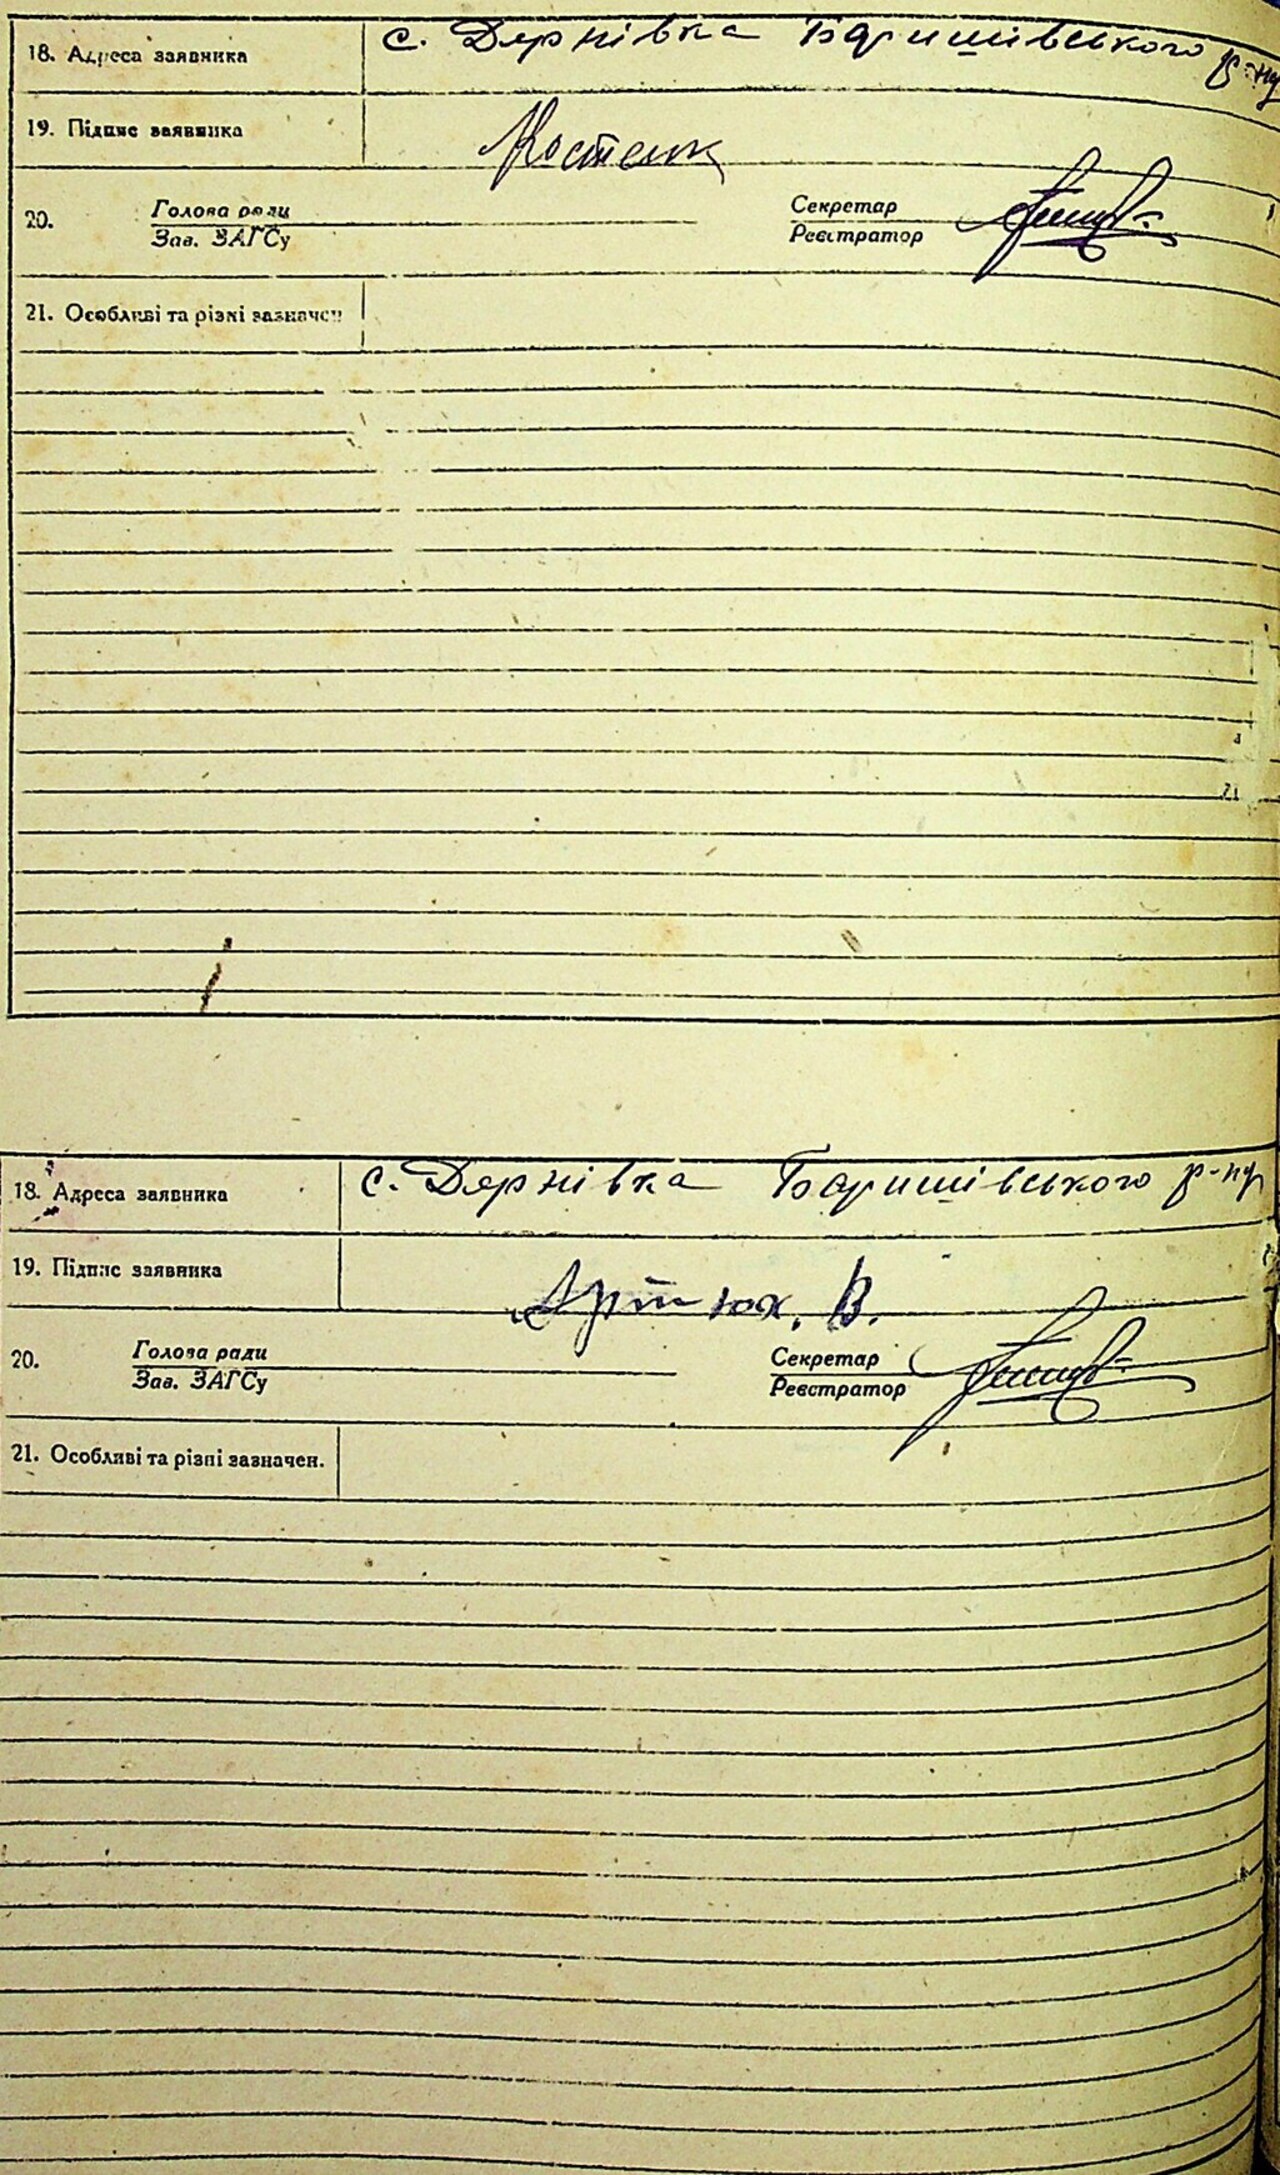 18. Адреса заявника с. Дернівка Баришівського р-ну
19. Підпис заявника Костенк
20. Голова ради Секретар
Зав. ЗАГСу Реєстратор
21. Особливі та різні зазначен.
18. Адреса заявника с. Дернівка Баришівського р-ну
19. Підпис заявника Артюх. В.
20. Голова ради Секретар
Зав. ЗАГСу Реєстратор
21. Особливі та різні зазначен.